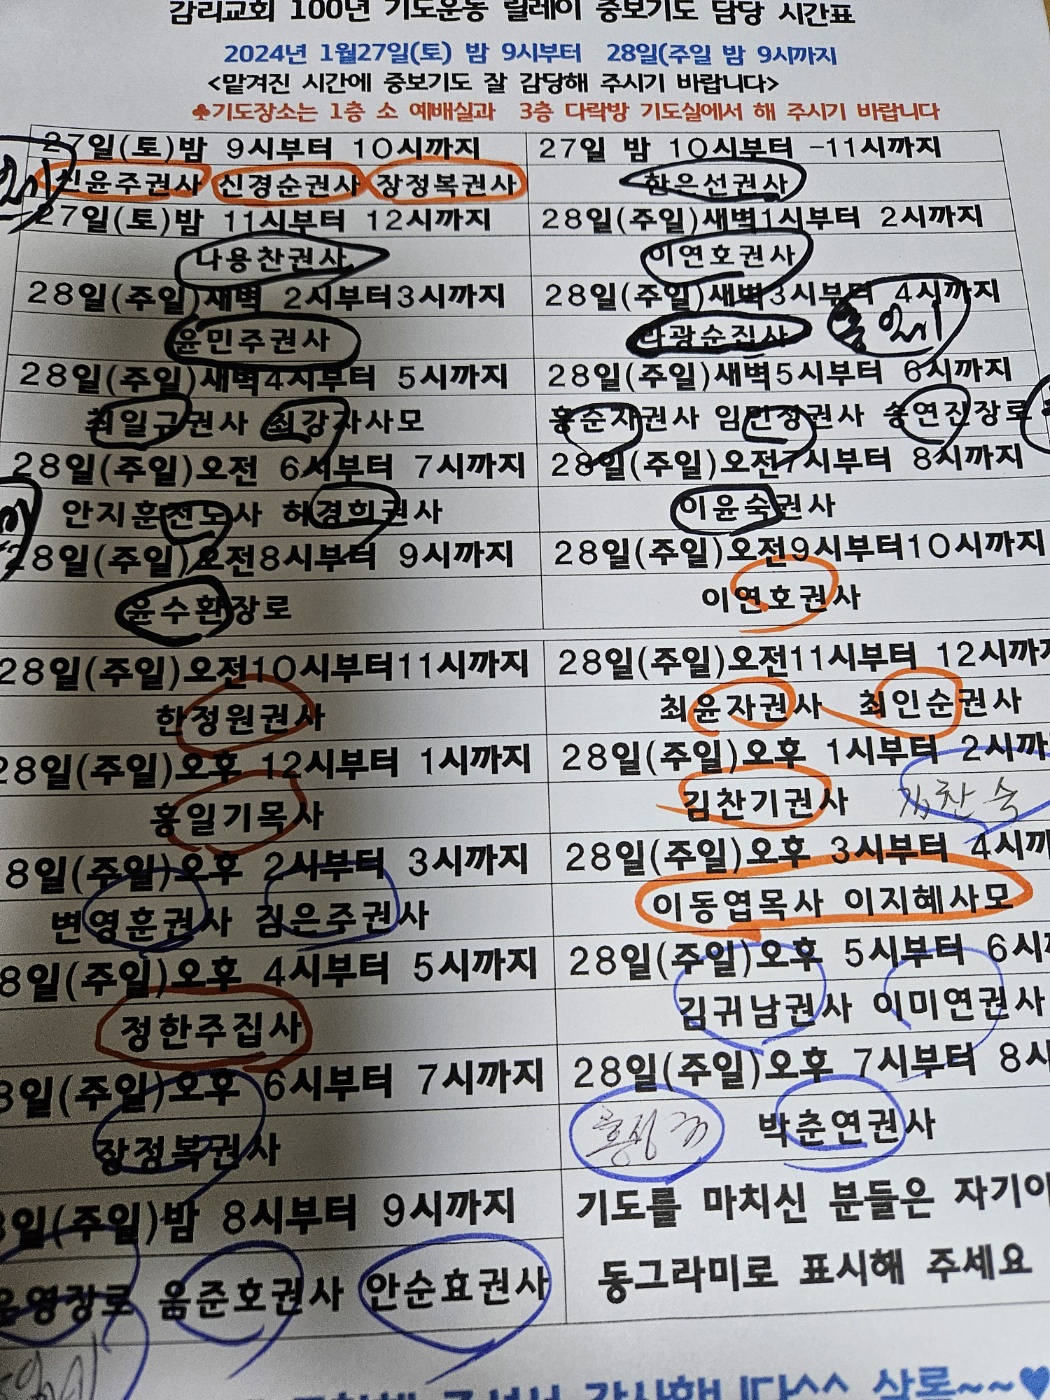 감리교회 100년 기도운동 릴레이 중보기도 담당 시간표
2024년 1월27일(토) 밤 9시부터 28일(주일 밤 9시까지
<맡겨진 시간에 중보기도 잘 감당해 주시기 바랍니다>
♣기도장소는 1층 소 예배실과 3층 다락방 기도실에서 해 주시기 바랍니다
27일(토)밤 9시부터 10시까지 27일 밤 10시부터 -11시까지
신윤주권사 신경순권사 장정복권사 한은선권사
27일(토)밤 11시부터 12시까지 28일(주일)새벽1시부터 2시까지
나용찬권사 이연호권사
28일(주일)새벽 2시부터3시까지 28일(주일)새벽3시부터 4시까지
윤민주권사 라광순집사
28일(주일)새벽4시부터 5시까지 28일(주일)새벽5시부터 6시까지
최일규권사 최강자사모 홍순자권사 임민정권사 송연진장로
28일(주일)오전 6시부터 7시까지 28일(주일)오전7시부터 8시까지
안지훈전도사 허경희권사 이윤숙권사
28일(주일)오전8시부터 9시까지 28일(주일)오전9시부터10시까지
윤수환장로 이연호권사
28일(주일)오전10시부터11시까지 28일(주일)오전11시부터 12시까지
한정원권사 최윤자권사 최인순권사
28일(주일)오후 12시부터 1시까지 28일(주일)오후 1시부터 2시까
홍일기목사 김찬기권사 김찬숙
8일(주일)오후 2시부터 3시까지 28일(주일)오후 3시부터 4시까
변영훈권사 김은주권사 이동엽목사 이지혜사모
8일(주일)오후 4시부터 5시까지 28일(주일)오후 5시부터 6시
정한주집사 김귀남권사 이미연권사
8일(주일)오후 6시부터 7시까지 28일(주일)오후 7시부터 8시
장정복권사 박춘연권사
일(주일)밤 8시부터 9시까지 기도를 마치신 분들은 자기이
영장로 움준호권사 안순효권사 동그라미로 표시해 주세요